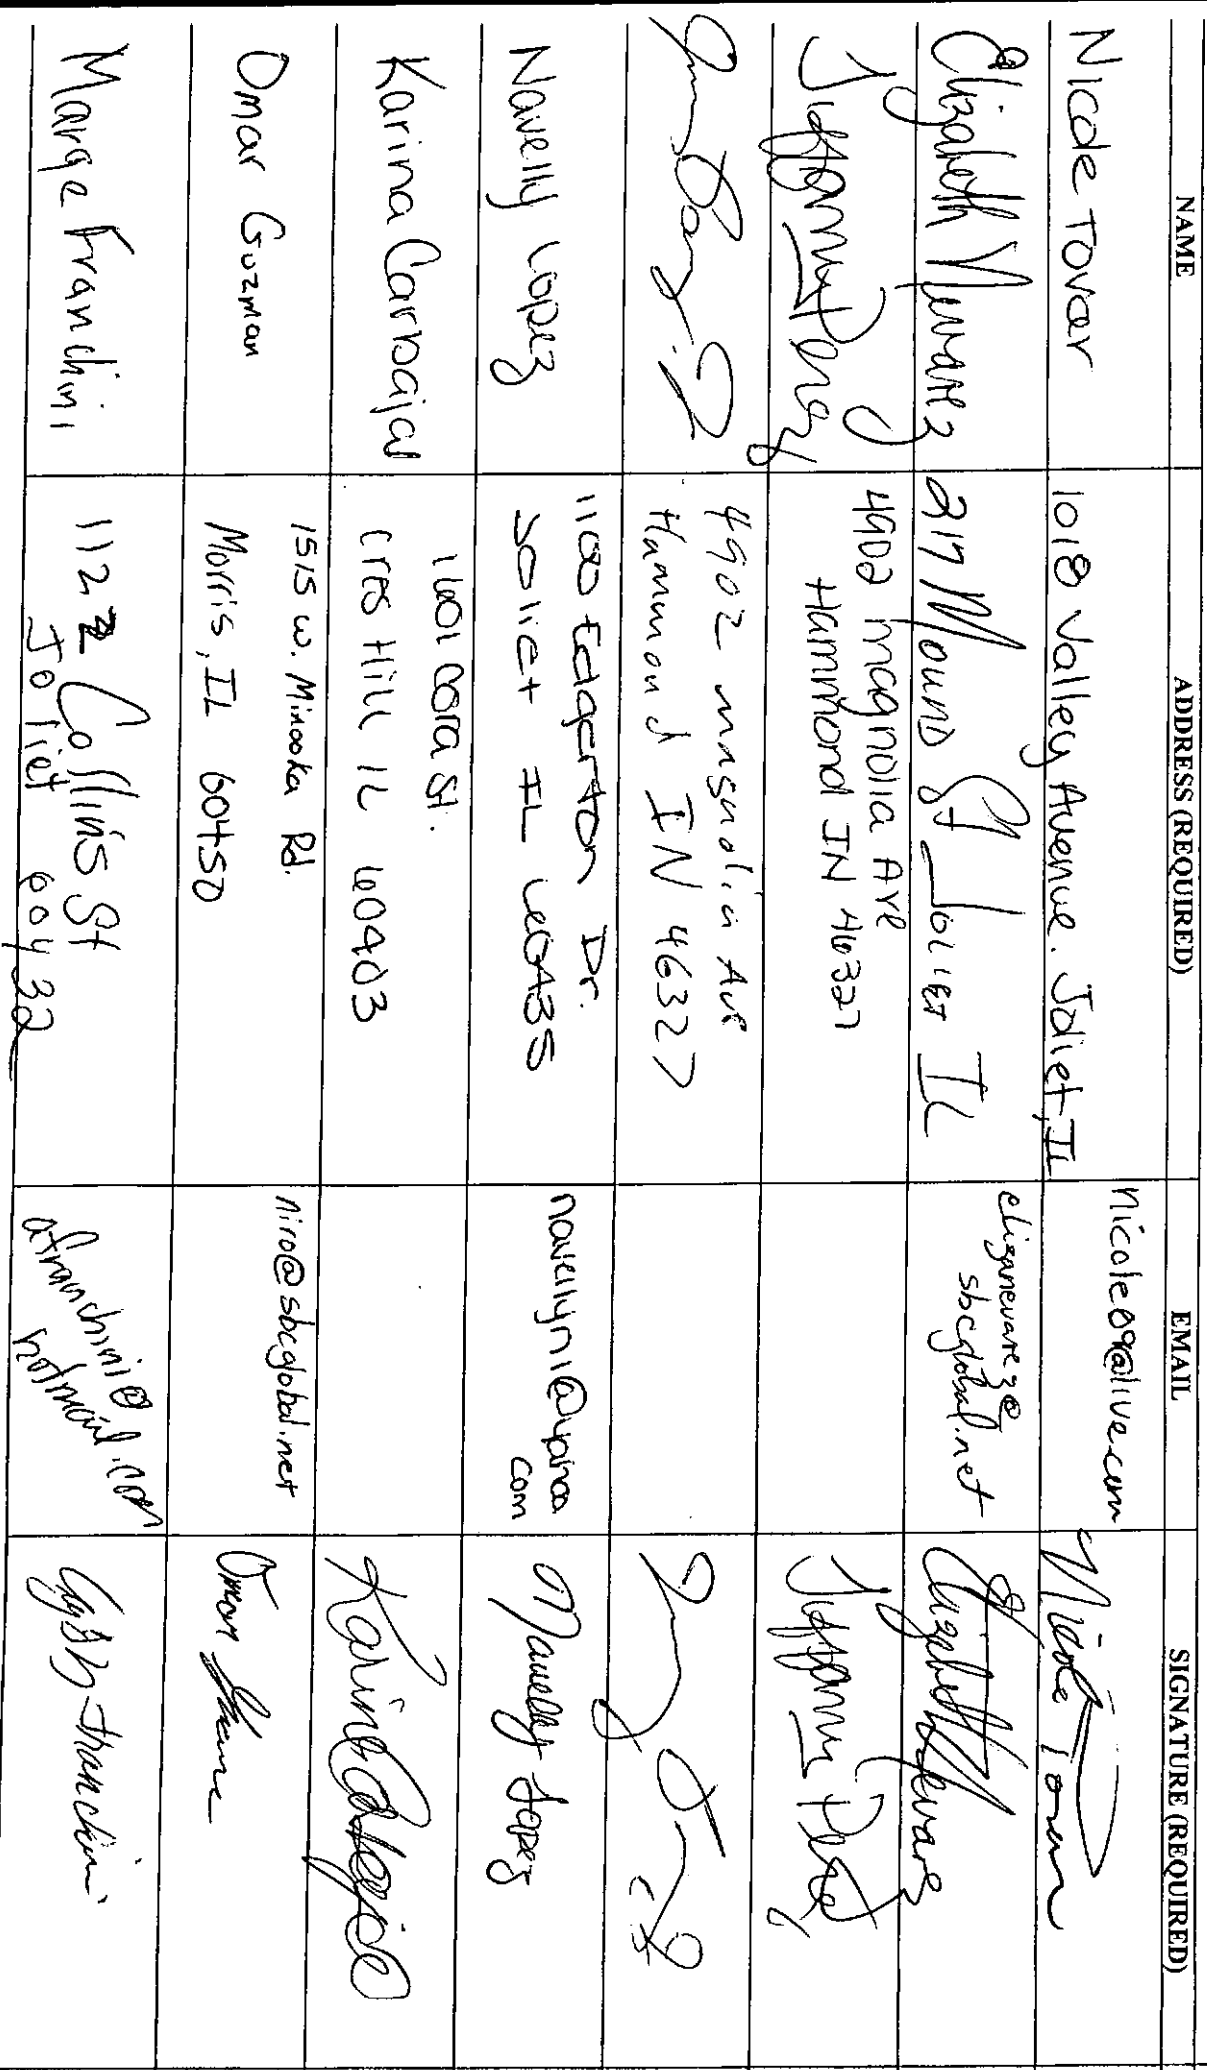 NAME ADDRESS (REQUIRED) EMAIL SIGNATURE (REQUIRED)
Nicole Tovar 1018 Valley Avenue. Joliet, IL nicole09@live.com Nicole Tovar
Elizabeth Nevarez 217 Mound St Joliet IL elizanevarez@
sbcglobal.net Elizabeth Nevarez
Tiffany Perez 4902 magnolia Ave
Hammond IN 46327 Tiffany Perez
4902 magnolia Ave
Hammond IN 46327
Navelly Lopez 1100 Edgerton Dr.
Joliet IL 60435 navellyn1@yahoo
com Navelly Lopez
Karina Carbajal 1601 Cora St.
Cres Hill IL 60403 Karina Carbajal
Omar Guzman 1515 W. Minooka Rd.
Morris, IL 60450 niro@sbcglobal.net Omar
Marge Franchini 112 Collins St
Joliet 60432 afranchini@
hotmail.com Franchini